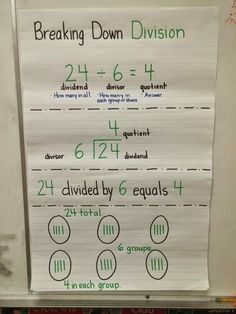 Breaking Down Division
24 ÷ 6 = 4
dividend divisor quotient
How many in all. How many in each group or share Answer
4 quotient
divisor 6 ⟌24 dividend
24 divided by 6 equals 4
24 total
6 groups
4 in each group.